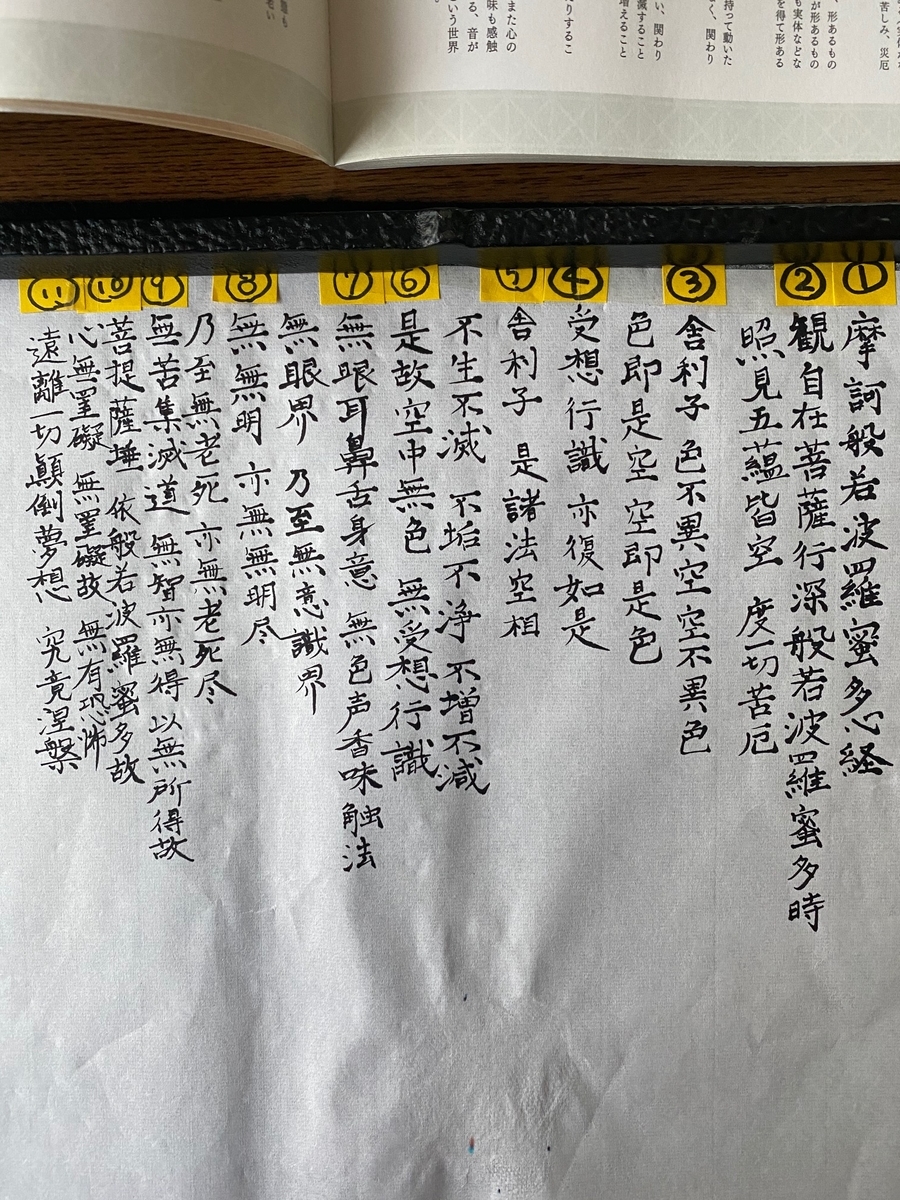 ①
②
③
④
⑤
⑥
⑦
⑧
⑨
⑩
⑪
摩訶般若波羅蜜多心経
観自在菩薩行深般若波羅蜜多時
照見五蘊皆空 度一切苦厄
舎利子 色不異空 空不異色
色即是空 空即是色
受想行識 亦復如是
舎利子 是諸法空相
不生不滅 不垢不浄 不増不減
是故空中無色 無受想行識
無眼耳鼻舌身意 無色声香味触法
無眼界 乃至無意識界
無無明 亦無無明尽
乃至無老死 亦無老死尽
無苦集滅道 無智亦無得 以無所得故
菩提薩埵 依般若波羅蜜多故
心無罣礙 無罣礙故 無有恐怖
遠離一切顛倒夢想 究竟涅槃
苦しみ、災厄
、形あるもの
が形あるもの
も実体などな
を得て形ある
持って動いた
く、関わり
い、関わり
滅すること
増えること
りするこ
また心の
味も感触
る、音が
いう世界